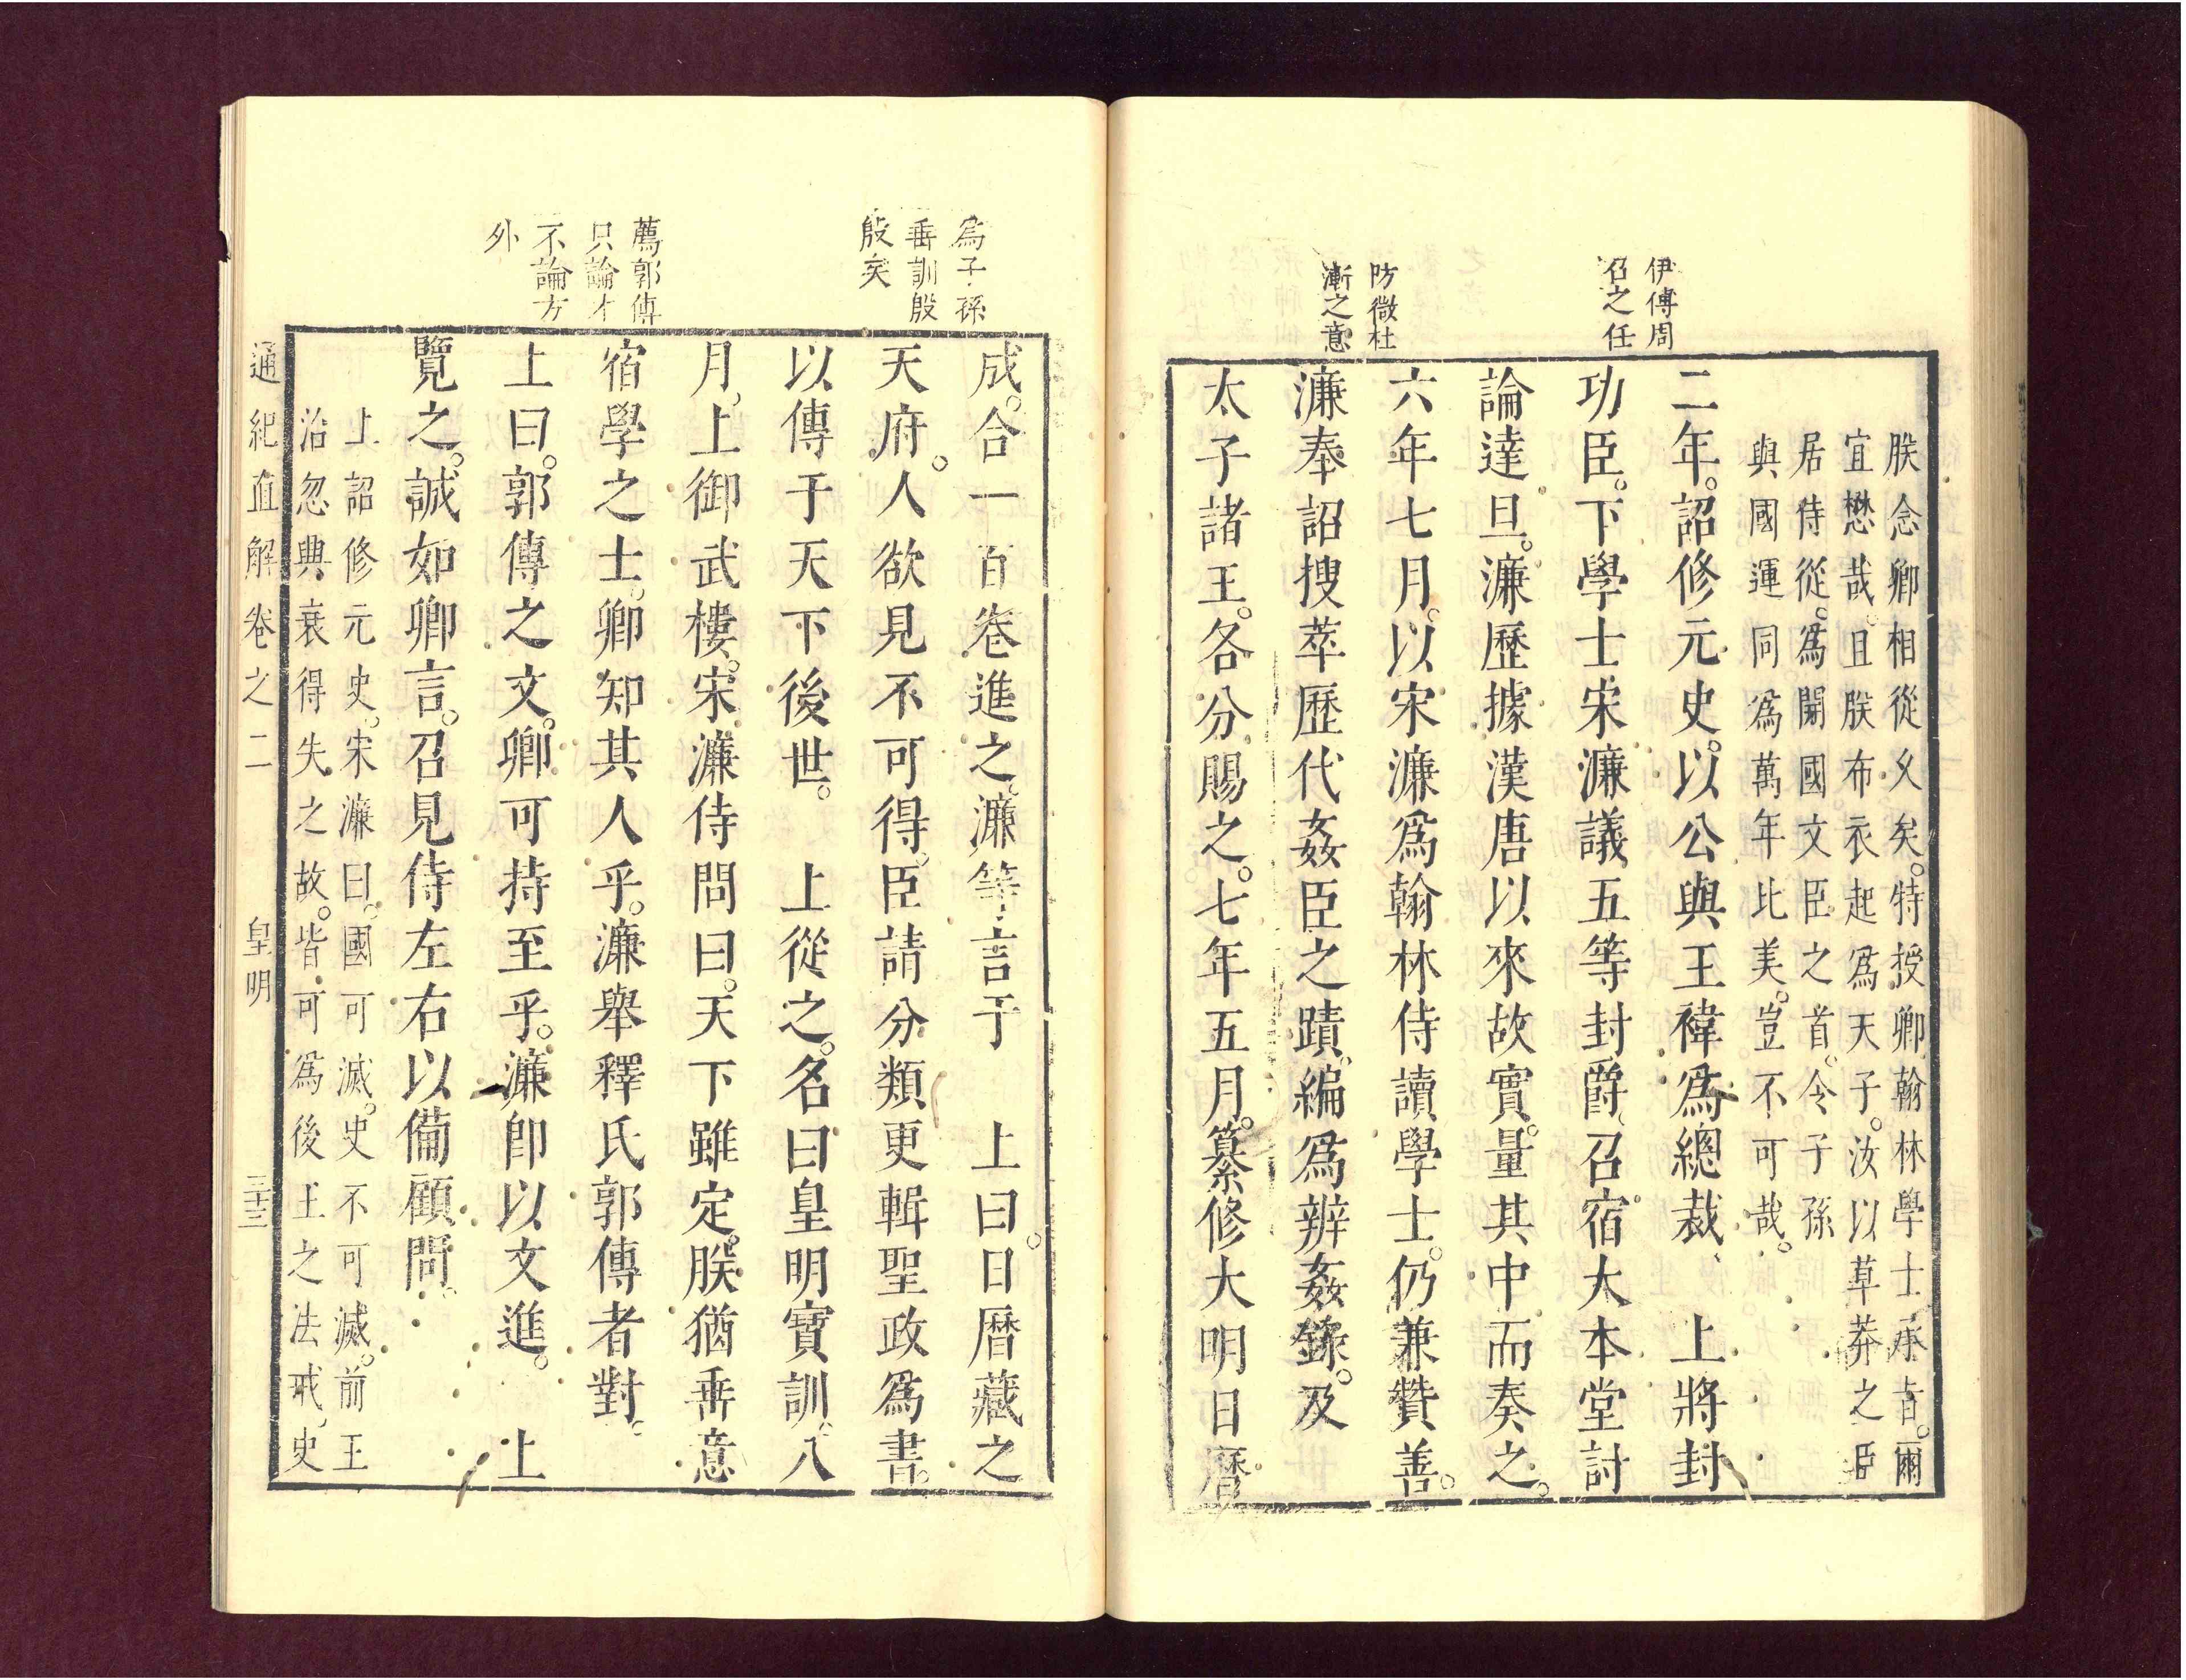 伊傅周
召之任
防微杜
漸之意
朕念卿相從久矣。特授卿翰林學士承旨。爾
宜懋哉。且朕布衣起爲天子。汝以草莽之臣
居侍從。爲開國文臣之首。令子孫
與國運同。爲萬年比美。豈不可哉。
二年。詔修元史。以公與王褘爲總裁、　上將封
功臣。下學士宋濂議五等封爵、召宿大本堂討
論達旦。濂歷據漢唐以來故實。量其中而奏之。
六年七月。以宋濂爲翰林侍讀學士。仍兼贊善。
濂奉詔搜萃歷代姦臣之蹟。編爲辨姦錄。及
太子諸王。各分賜之。七年五月。纂修大明日曆
爲子孫
垂訓殷
殷矣
薦郭傳
只論才
不論方
外
成。合一百卷進之。濂等言于　上曰。日曆藏之
天府。人欲見不可得。臣請分類更輯聖政爲書。
以傳于天下後世。　上從之。名曰皇明寶訓。八
月。上御武樓。宋濂侍問曰。天下雖定。朕猶垂意
宿學之士。卿知其人乎。濂舉釋氏郭傳者對。
上曰。郭傳之文。卿可持至乎。濂卽以文進。　上
覽之。誠如卿言。召見侍左右以備顧問。
上詔修元史。宋濂曰。國可滅。史不可滅。前王
治忽興衰得失之故。皆可爲後王之法戒。史
通紀直解卷之二　皇明　三十三